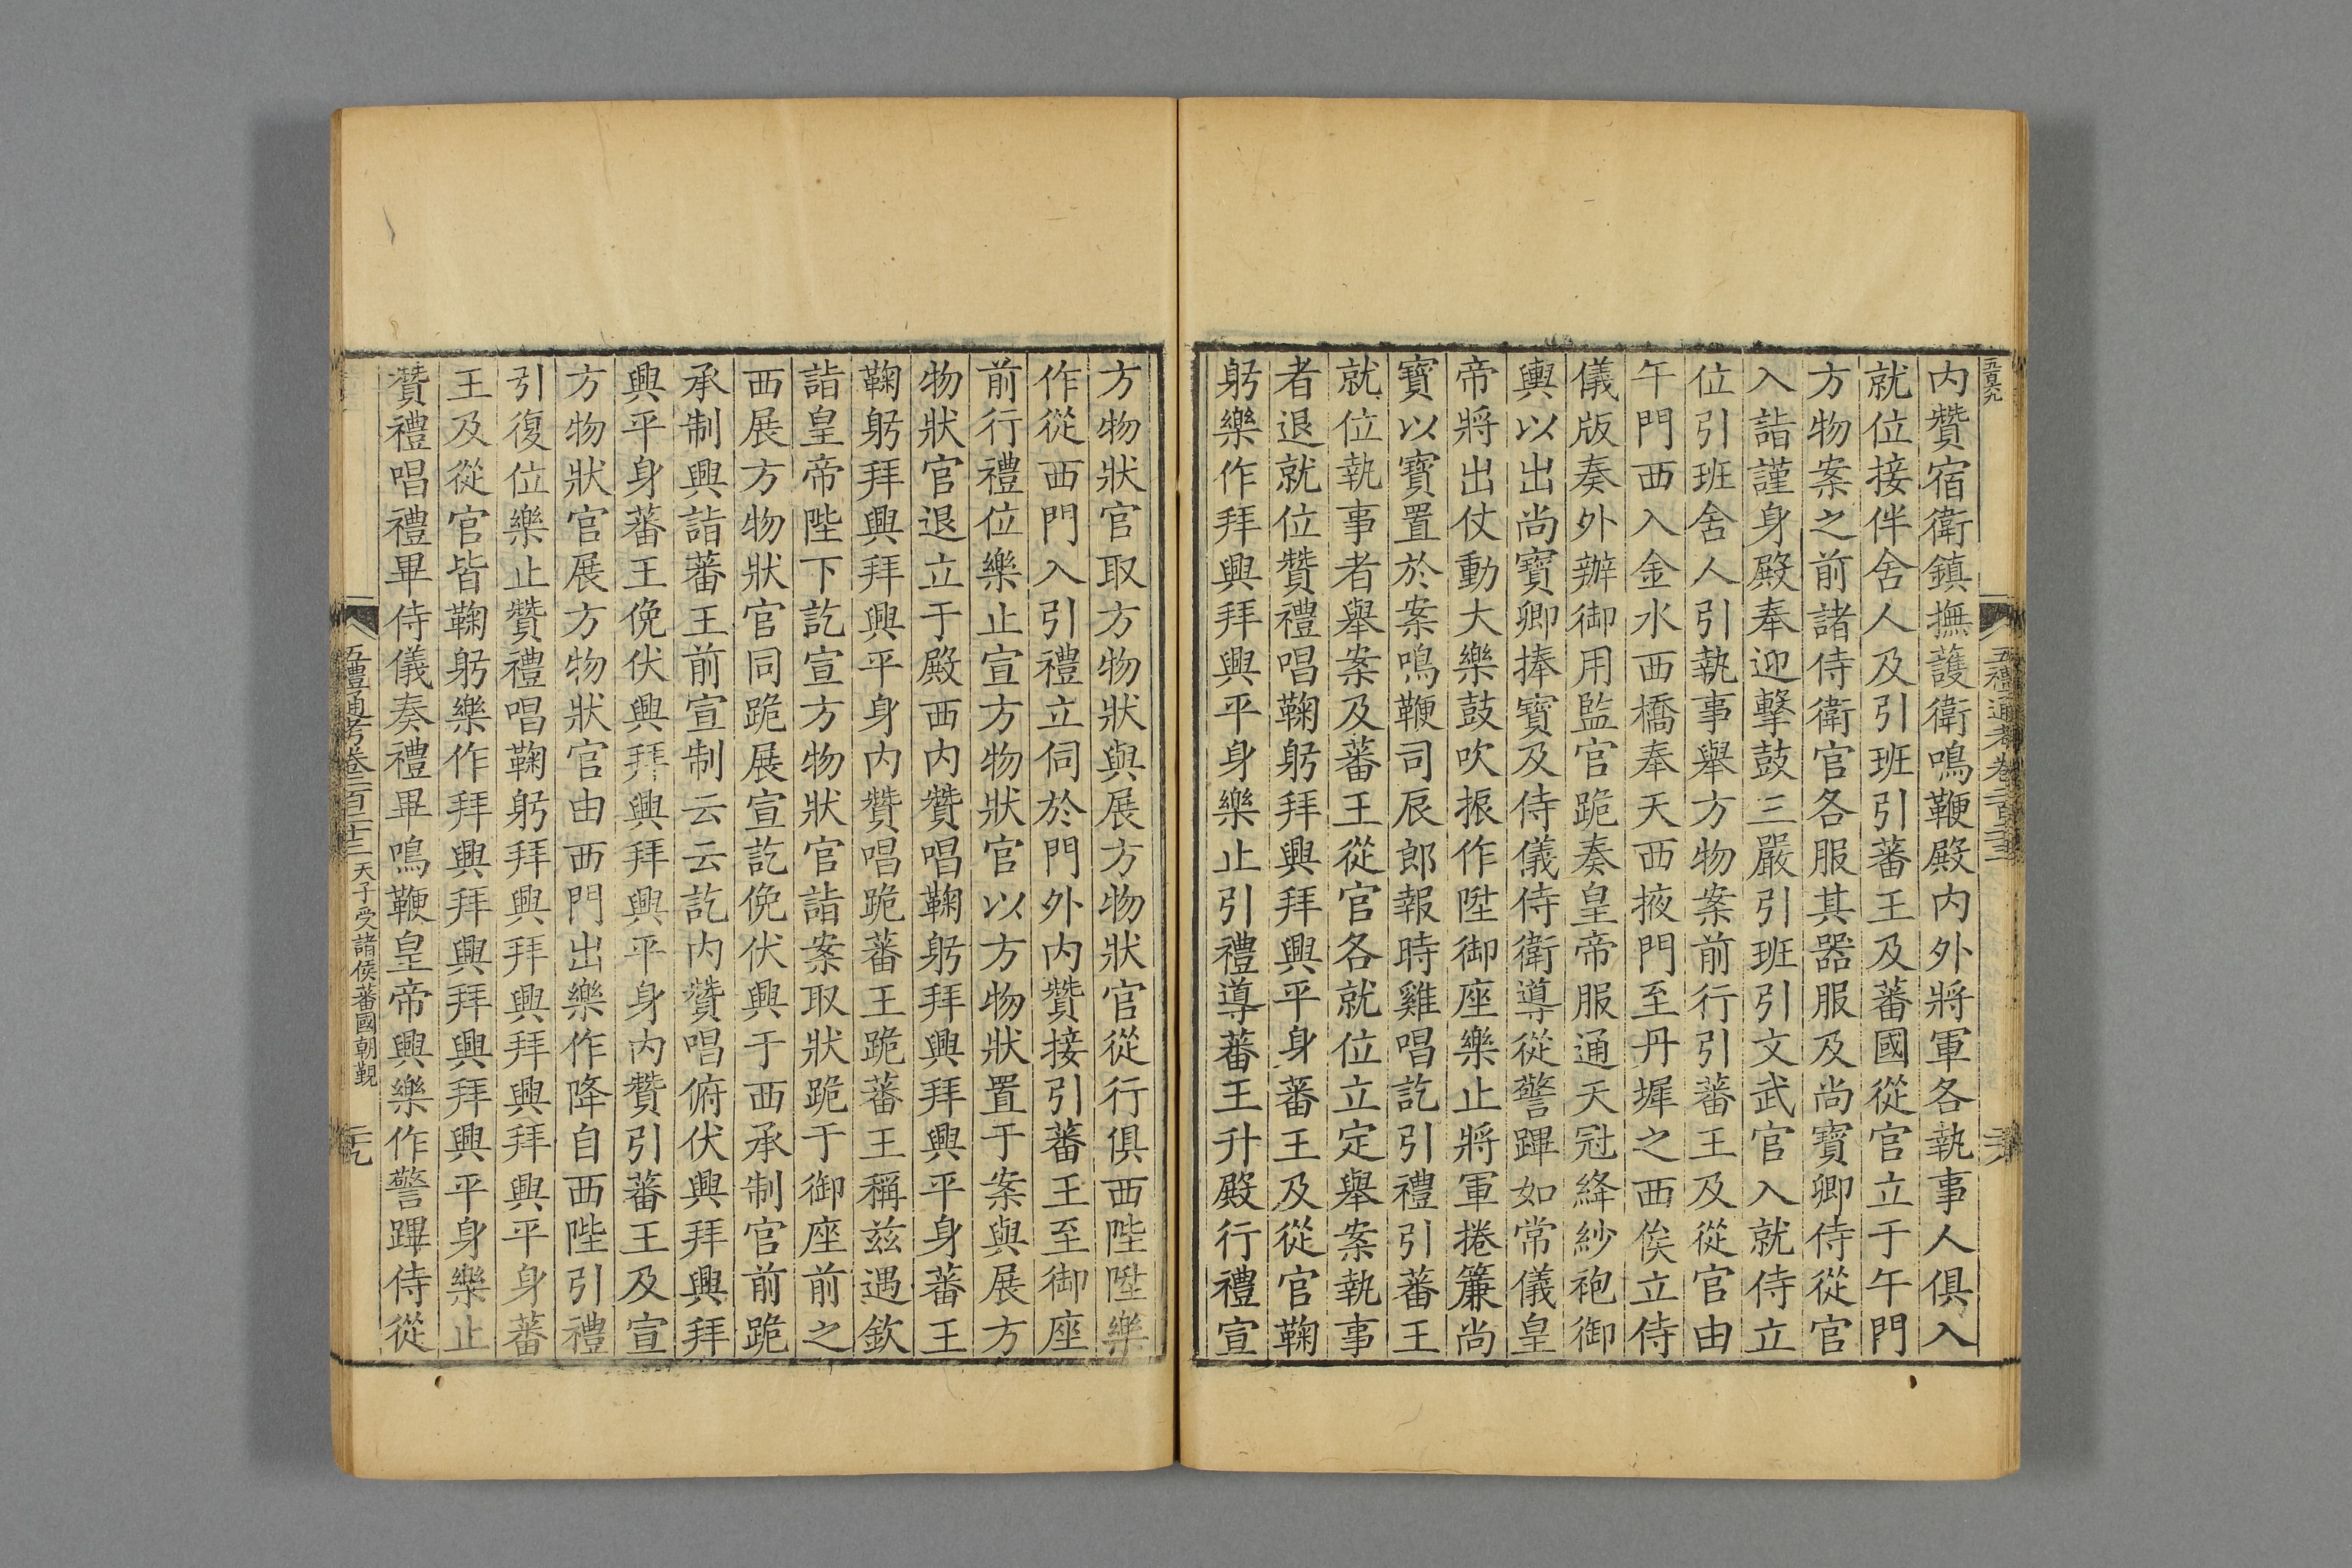 内贊宿衛鎮撫護衛鳴鞭殿内外將軍各執事人俱入
就位接伴舍人及引班引蕃王及蕃國從官立于午門
方物案之前諸侍衛官各服其器服及尚寶卿侍從官
入詣謹身殿奉迎擊鼓三嚴引班引文武官入就侍立
位引班舍人引執事舉方物案前行引蕃王及從官由
午門西入金水西橋奉天西掖門至丹墀之西俟立侍
儀版奏外辦御用監官跪奏皇帝服通天冠絳紗袍御
輿以出尚寶卿捧寶及侍儀侍衛導從警蹕如常儀皇
帝將出仗動大樂鼓吹振作陞御座樂止將軍捲簾尚
寶以寶置於案鳴鞭司辰郎報時雞唱訖引禮引蕃王
就位執事者舉案及蕃王從官各就位立定舉案執事
者退就位贊禮唱鞠躬拜興拜興平身蕃王及從官鞠
躬樂作拜興拜興平身樂止引禮導蕃王升殿行禮宣
方物狀官取方物狀與展方物狀官從行俱西陛陞樂
作從西門入引禮立伺於門外内贊接引蕃王至御座
前行禮位樂止宣方物狀官以方物狀置于案與展方
物狀官退立于殿西内贊唱鞠躬拜興拜興平身蕃王
鞠躬拜興拜興平身内贊唱跪蕃王跪蕃王稱茲遇欽
詣皇帝陛下訖宣方物狀官詣案取狀跪于御座前之
西展方物狀官同跪展宣訖俛伏興于西承制官前跪
承制興詣蕃王前宣制云云訖内贊唱俯伏興拜興拜
興平身蕃王俛伏興拜興拜興平身内贊引蕃王及宣
方物狀官展方物狀官由西門出樂作降自西陛引禮
引復位樂止贊禮唱鞠躬拜興拜興拜興拜興平身蕃
王及從官皆鞠躬樂作拜興拜興拜興拜興平身樂止
贊禮唱禮畢侍儀奏禮畢鳴鞭皇帝興樂作警蹕侍從
五禮通考卷二百二十二 天子受諸侯蕃國朝覲